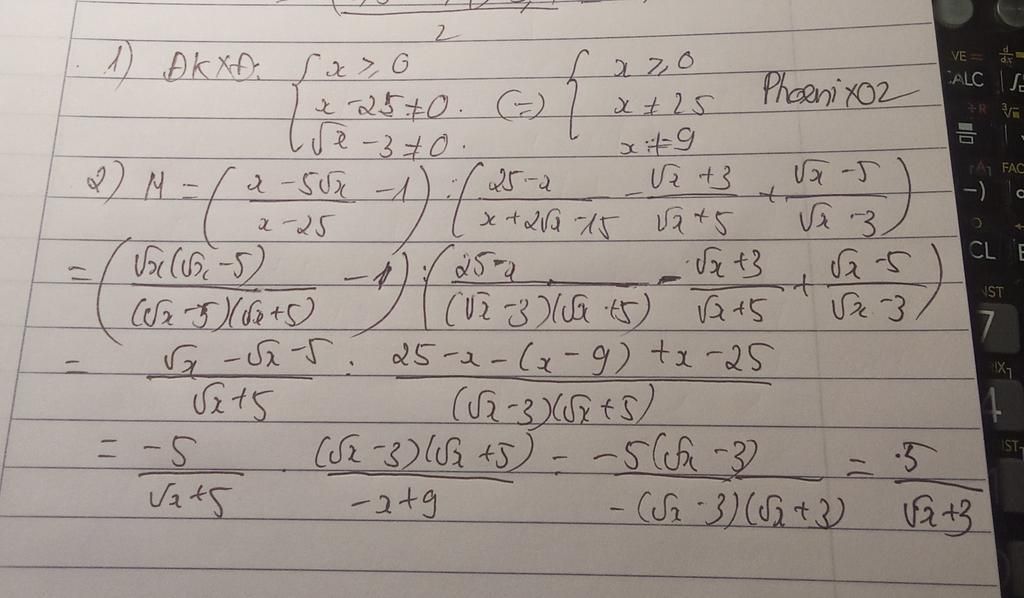 2
1) ĐKXĐ: { x ⩾ 0 { x ⩾ 0
x - 25 ≠ 0. (=) x ≠ 25 Phoenix02
√x - 3 ≠ 0. x ≠ 9
2) M = ( (x - 5√x)/(x - 25) - 1 ) : ( (25 - x)/(x + 2√x - 15) - (√x + 3)/(√x + 5) + (√x - 5)/(√x - 3) )
= ( (√x(√x - 5))/((√x - 5)(√x + 5)) - 1 ) : ( (25 - x)/((√x - 3)(√x + 5)) - (√x + 3)/(√x + 5) + (√x - 5)/(√x - 3) )
= (√x - √x - 5)/(√x + 5) : (25 - x - (x - 9) + x - 25)/((√x - 3)(√x + 5))
= (-5)/(√x + 5) . ((√x - 3)(√x + 5))/(-x + 9) = (-5(√x - 3))/(-(√x - 3)(√x + 3)) = 5/(√x + 3)
VE =
CALC
FAC
(-)
CL
7
4